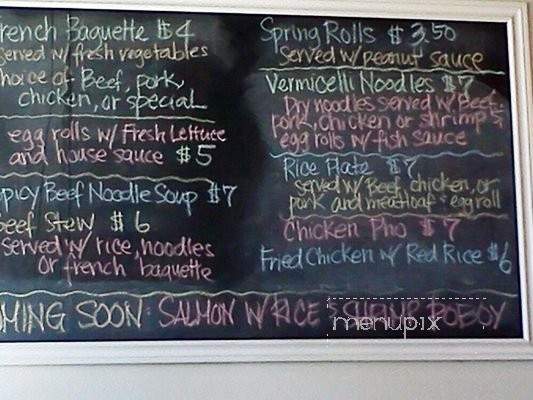 rench Baguette $4
served w/ fresh vegetables
hoice of Beef, pork,
chicken, or special
egg rolls w/ Fresh Lettuce
and house sauce $5
picy Beef Noodle Soup $7
beef Stew $6
served w/ rice, noodles
or french baguette
Spring Rolls $3.50
served w/ peanut sauce
Vermicelli Noodles $7
Dry noodles served w/ Beef,
pork, chicken or shrimp &
egg rolls w/ fish sauce
Rice Plate $7
served w/ Beef, chicken, or
pork and meatloaf & egg roll
Chicken Pho $7
Fried Chicken w/ Red Rice $6
MING SOON: SALMON W/ RICE & SHRIMP POBOY
menupix